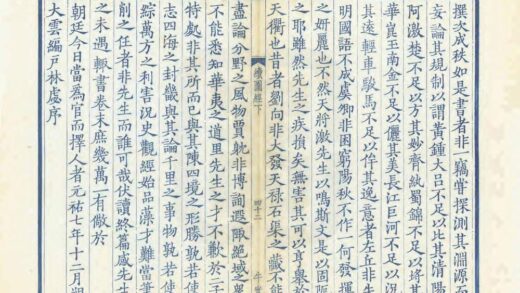 撰次成秩如是書者非一竊嘗探測其淵源而
妄論其規制以謂黃鍾大呂不足以比其清陽
阿激楚不足以方其妙齊紈蜀錦不足以其
華崑玉南金不足以儷其美長江巨河不足以況
其遠輕車駿馬不足以侔其逸意者左丘非失
明國語不成虞卿非困窮陽秋不作何發揮
之妍麗也不然天將激先生以鳴斯文是以固阨
之耶雖然先生之疾損矣無害其可以亨舉於
天衢也昔者劉向非大發天祿石渠之藏不能
續圖經下
四十三
盡論分野之風物賈躭非博詢遐陬絕域之
不能悉知華夷之道里先生之才不歉於二子
特處非其所而已與其陳四境之形勝孰若使
志四海之封畿與其論千里之事物孰若使
綜萬方之利害況史觀經始品藻才難當筆
削之任者非先生而誰可哉伏讀終篇感先生
之未遇輒書卷末庶幾萬一有儆於
朝廷今日當為官而擇人者元祐七年十二月朔
大雲編戶林虙序